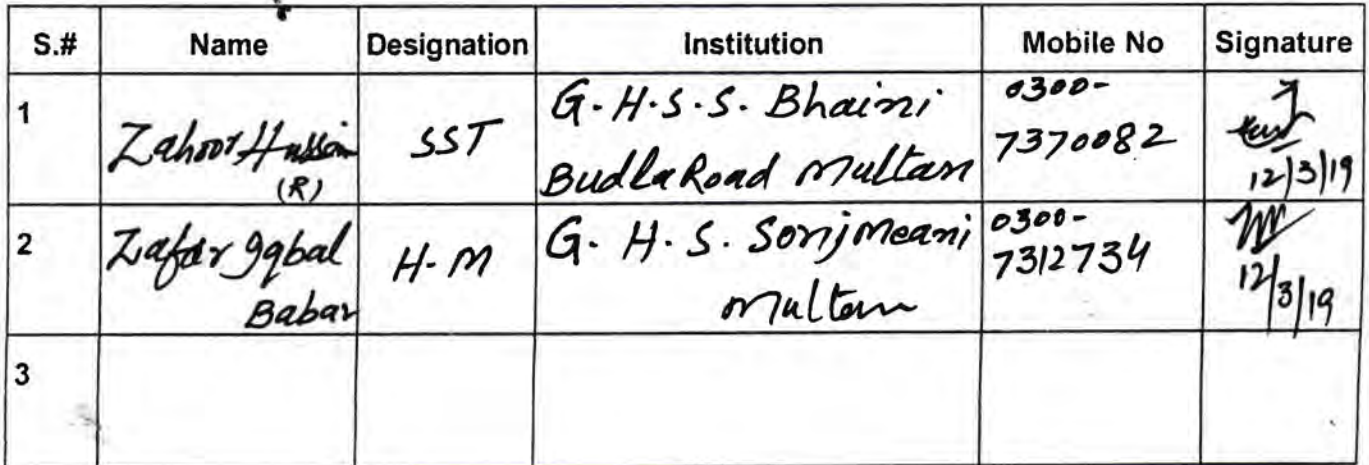 S.# Name Designation Institution Mobile No Signature
1 Zahoor Hussain SST G.H.S.S. Bhaini 0300-
(R) Budla Road Multan 7370082
12/3/19
2 Zafar Iqbal H.M G.H.S. Sorijmeani 0300-
Babar Multan 7312734
12/3/19
3